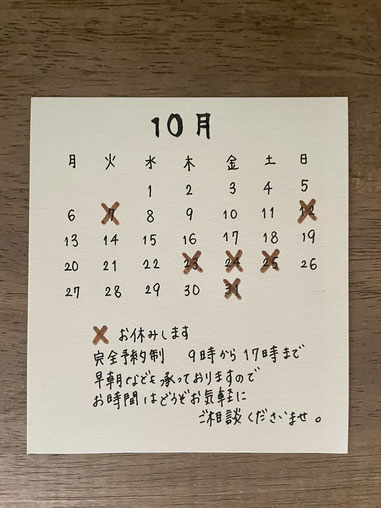 10月
月 火 水 木 金 土 日
1 2 3 4 5
6 7 8 9 10 11 12
13 14 15 16 17 18 19
20 21 22 23 24 25 26
27 28 29 30 31
お休みします
完全予約制 9時から17時まで
早朝なども承っておりますので
お時間はどうぞお気軽に
ご相談くださいませ。